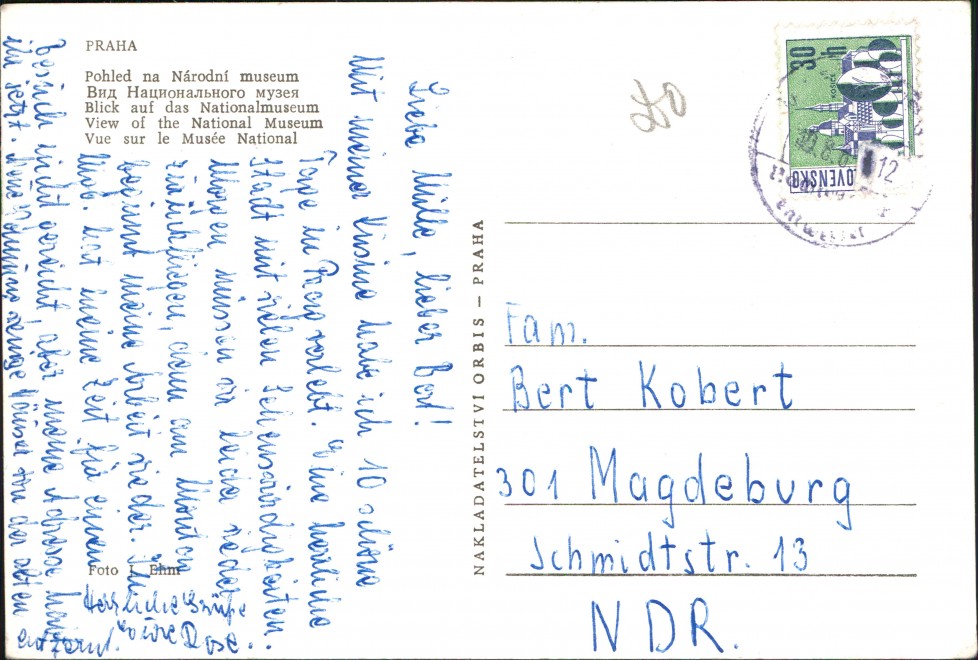 PRAHA
Pohled na Národní museum
Вид Национального музея
Blick auf das Nationalmuseum
View of the National Museum
Vue sur le Musée National
Liebe Mulle, lieber Bert!
Mit meiner Kusine habe ich 10 schöne
Tage in Prag verlebt. Eine herrliche
Stadt mit vielen Sehenswürdigkeiten.
Morgen müssen wir leider wieder
zurückfliegen, denn am Montag
beginnt meine Arbeit wieder. In
Mgb. hat meine Zeit für einen
Besuch nicht gereicht, aber meine Adresse habt
ihr jetzt. Meine Wohnung wenige Häuser von der alten
entfernt.
Herzliche Grüße
Eure Rose.
Foto J. Ehm
NAKLADATELSTVÍ ORBIS – PRAHA
30 h
KOŠICE
SLOVENSKO
12
entwertet
Fam.
Bert Kobert
301 Magdeburg
Schmidtstr. 13
NDR.